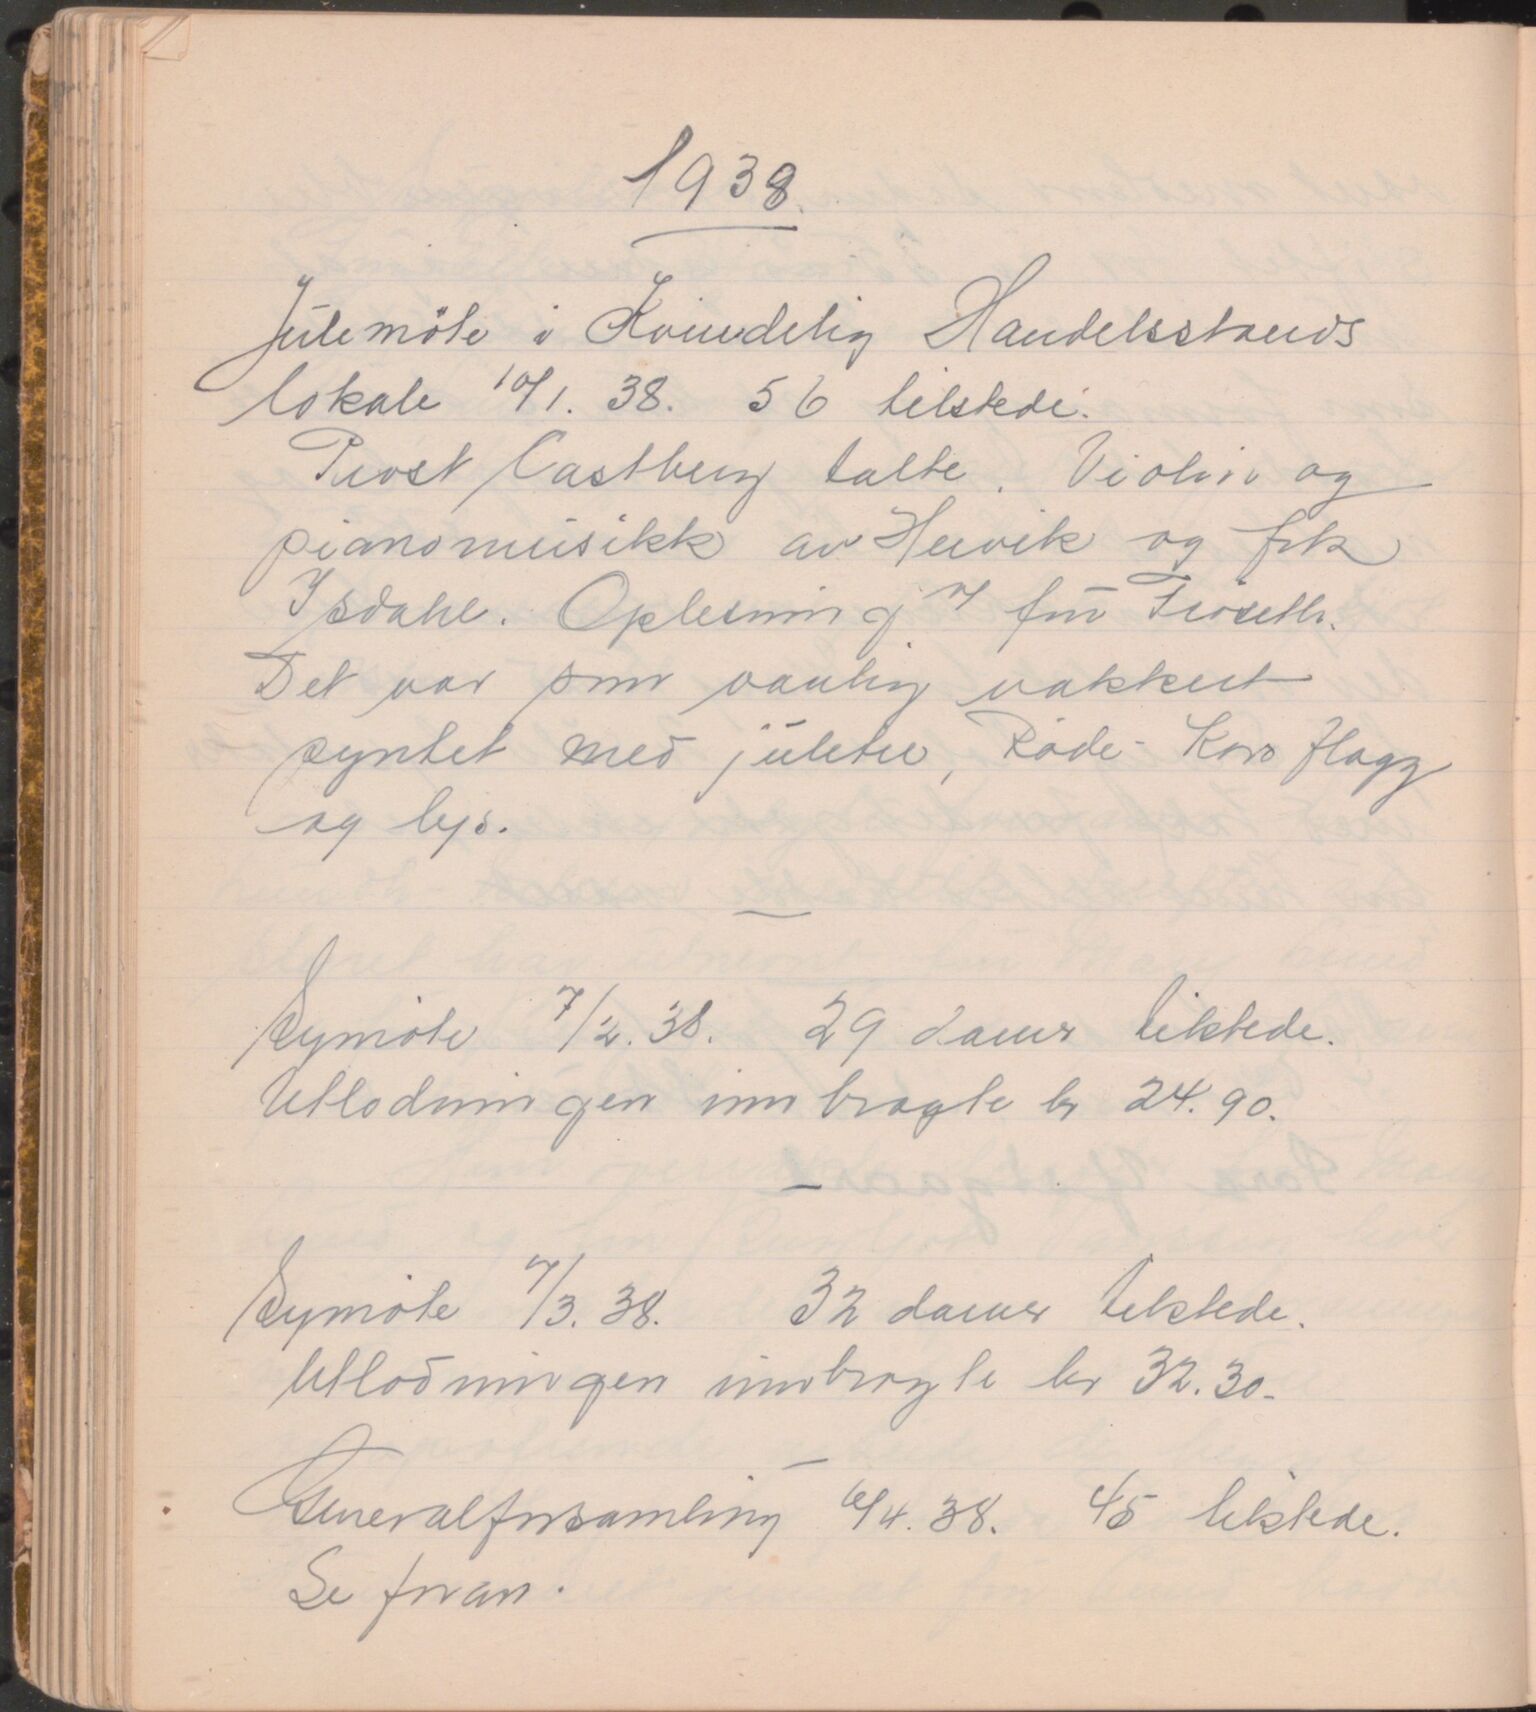 1938.
Julemöte i Kvindelig Handelsstands
lokale 10/1. 38. 56 tilstede.
Prost Castberg talte. Violin og
pianomusikk av Hervik og frk
Isdahl. Oplesning af fru Fröseth.
Det var som vanlig vakkert
pyntet med juletre, Röde-Kors flagg
og lys.
Symöte 7/2. 38. 29 damer tilstede.
Utlodningen innbragte kr 24.90.
Symöte 7/3. 38. 32 damer tilstede.
Utlodningen innbragte kr 32.30.
Generalforsamling 6/4. 38. 45 tilstede.
Se foran.